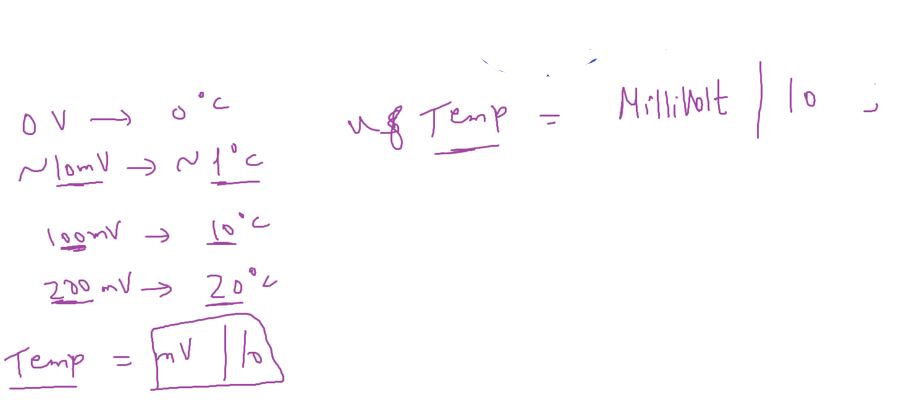 0 V → 0°C
~10mV → ~1°C
100mV → 10°C
200 mV → 20°C
Temp = mV | 10
Temp = MilliVolt | 10 ;